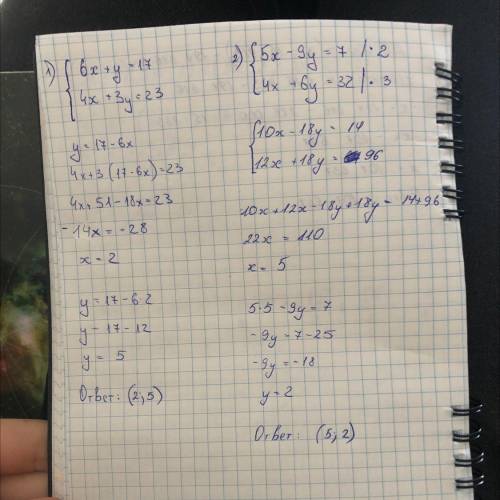 1) { 6x + y = 17
4x + 3y = 23
y = 17 - 6x
4x + 3 (17 - 6x) = 23
4x + 51 - 18x = 23
- 14x = - 28
x = 2
y = 17 - 6·2
y = 17 - 12
y = 5
Ответ: (2; 5)
2) { 5x - 9y = 7 | · 2
4x + 6y = 32 | · 3
{ 10x - 18y = 14
12x + 18y = 96
10x + 12x - 18y + 18y = 14 + 96
22x = 110
x = 5
5·5 - 9y = 7
- 9y = 7 - 25
- 9y = - 18
y = 2
Ответ: (5; 2)